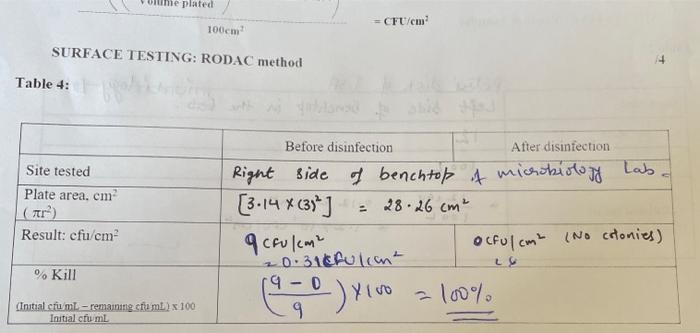 Volume plated
100cm²
= CFU/cm²
SURFACE TESTING: RODAC method
/4
Table 4:
Before disinfection
After disinfection
Site tested
Right side of benchtop of microbiology Lab.
Plate area, cm²
(πr²)
[3.14 x (3)²] = 28.26 cm²
Result: cfu/cm²
9 CFU/cm²
0 CFU/cm² (No colonies)
= 0.31CFU/cm²
% Kill
(Initial cfu/mL – remaining cfu/mL) x 100
Initial cfu/mL
(9 - 0
9) x 100 = 100%